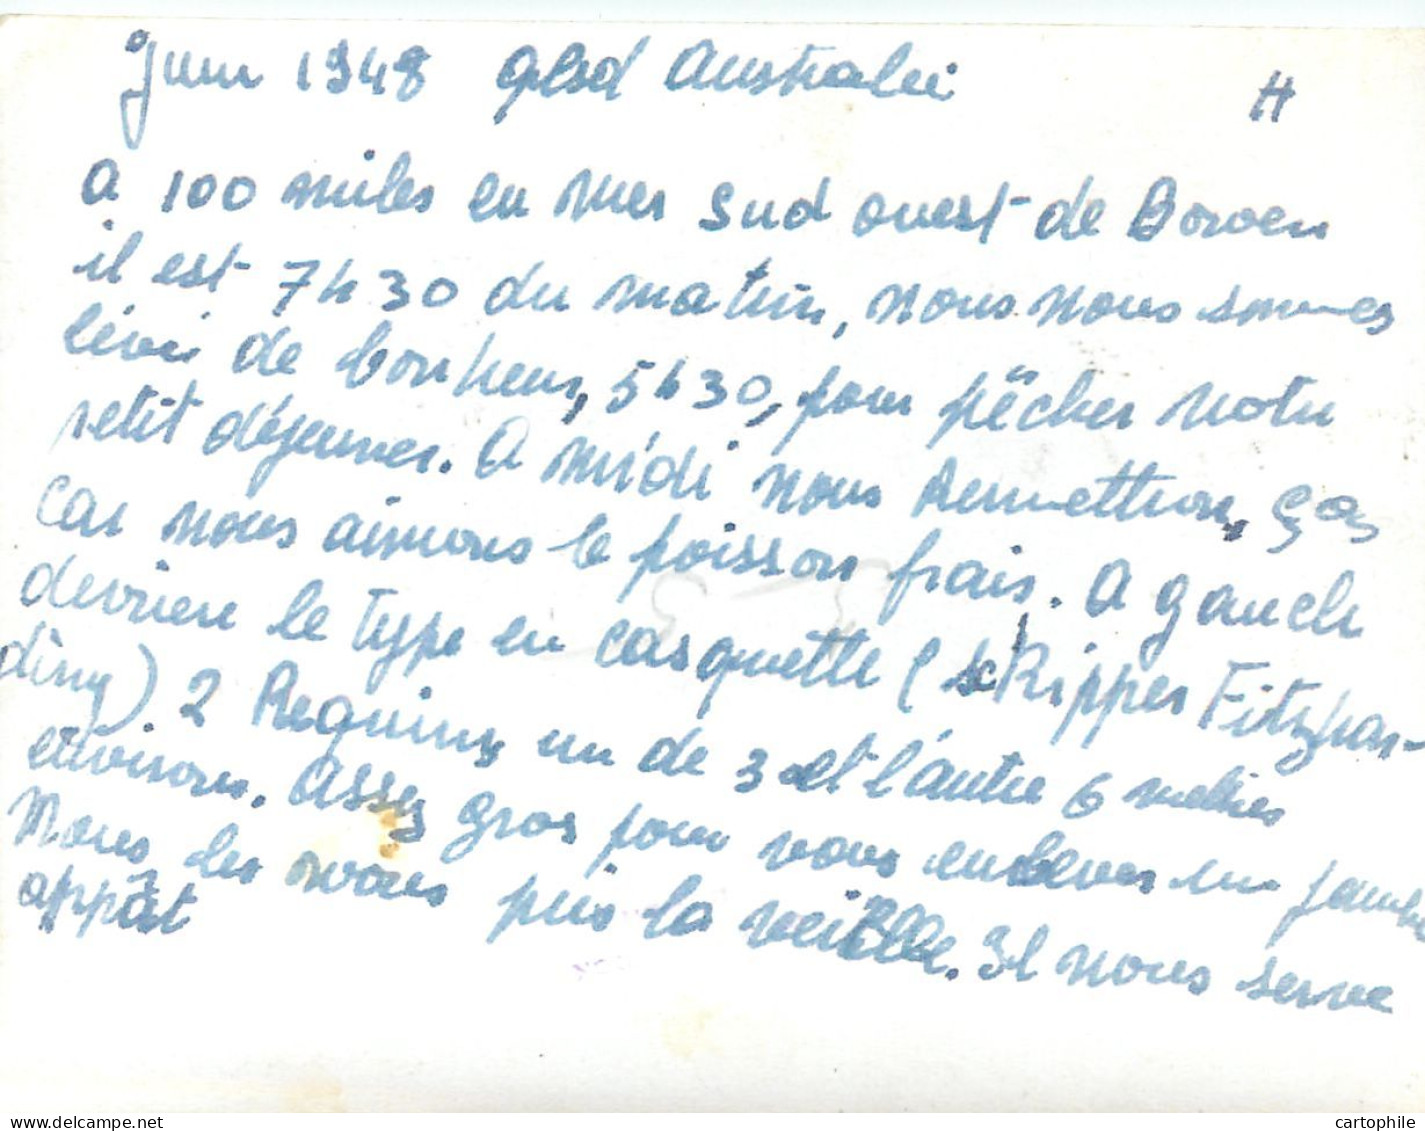 Juin 1948 Qlsd Australie
H
A 100 miles en mer sud ouest de Bowen
il est 7h30 du matin, nous nous sommes
levé de bonheur, 5h30, pour pêcher notre
petit déjeuner. A midi nous remettrons ça,
car nous aimons le poisson frais. A gauche
derriere le type en casquette (skipper Fitzhar-
ding) 2 Requins un de 3 et l'autre 6 metres
environs. Assez gros pour vous enlever une jambe
Nous les avons pris la veille. Il nous serve
appât
www.delcampe.net
cartophile